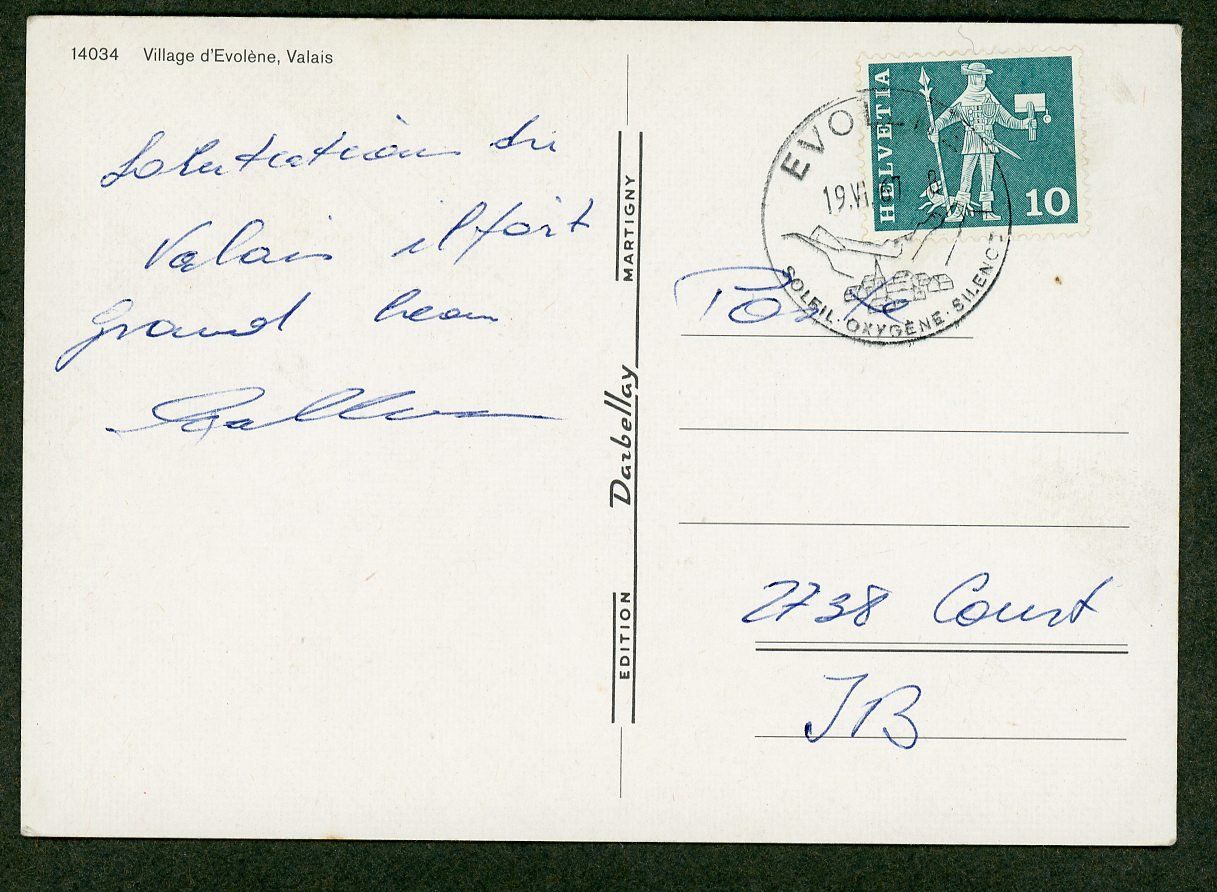 14034 Village d'Evolène, Valais
Salutation du
Valais il fait
grand beau
MARTIGNY
Darbellay
EDITION
HELVETIA
10
19.VI.
SOLEIL · OXYGÈNE · SILENCE
2738 Court
JB